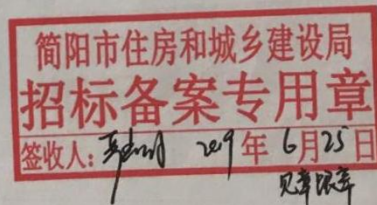 简阳市住房和城乡建设局
招标备案专用章
签收人: 2019年6月25日